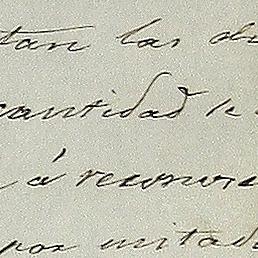 tan las di
cantidad le
á reconoce
por mitad